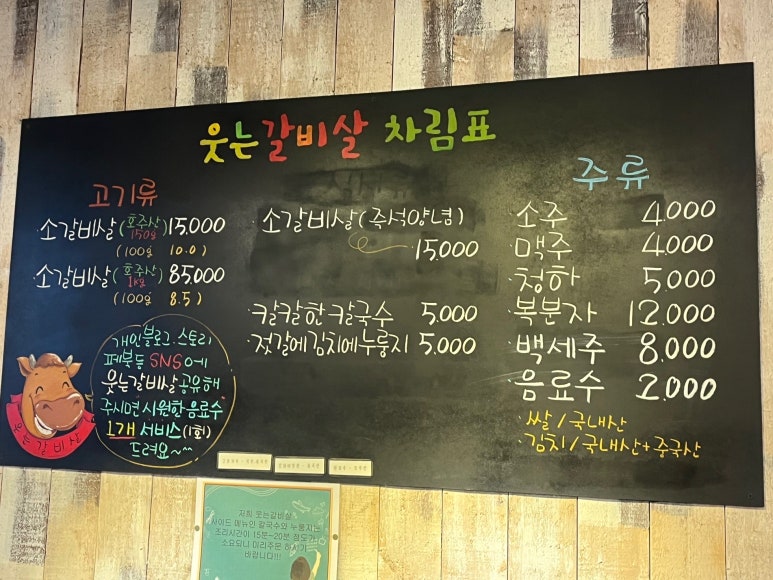 웃는갈비살 차림표
고기류
·소갈비살(호주산 150g) 15,000
(100g 10.0)
소갈비살(호주산 1kg) 85,000
(100g 8.5)
개인블로그·스토리
페북등 SNS에
웃는갈비살공유해
주시면 시원한 음료수
1개 서비스(1회)
드려요~
웃는갈비살
·소갈비살(즉석양념)
15,000
·칼칼한칼국수 5,000
·젓갈에김치에누룽지 5,000
주류
·소주 4,000
·맥주 4,000
·청하 5,000
·복분자 12,000
·백세주 8,000
·음료수 2,000
·쌀/국내산
·김치/국내산+중국산
저희 웃는갈비살
사이드 메뉴인 칼국수와 누룽지는
조리시간이 15분~20분 정도가
소요되니 미리주문 하시기
바랍니다!!!